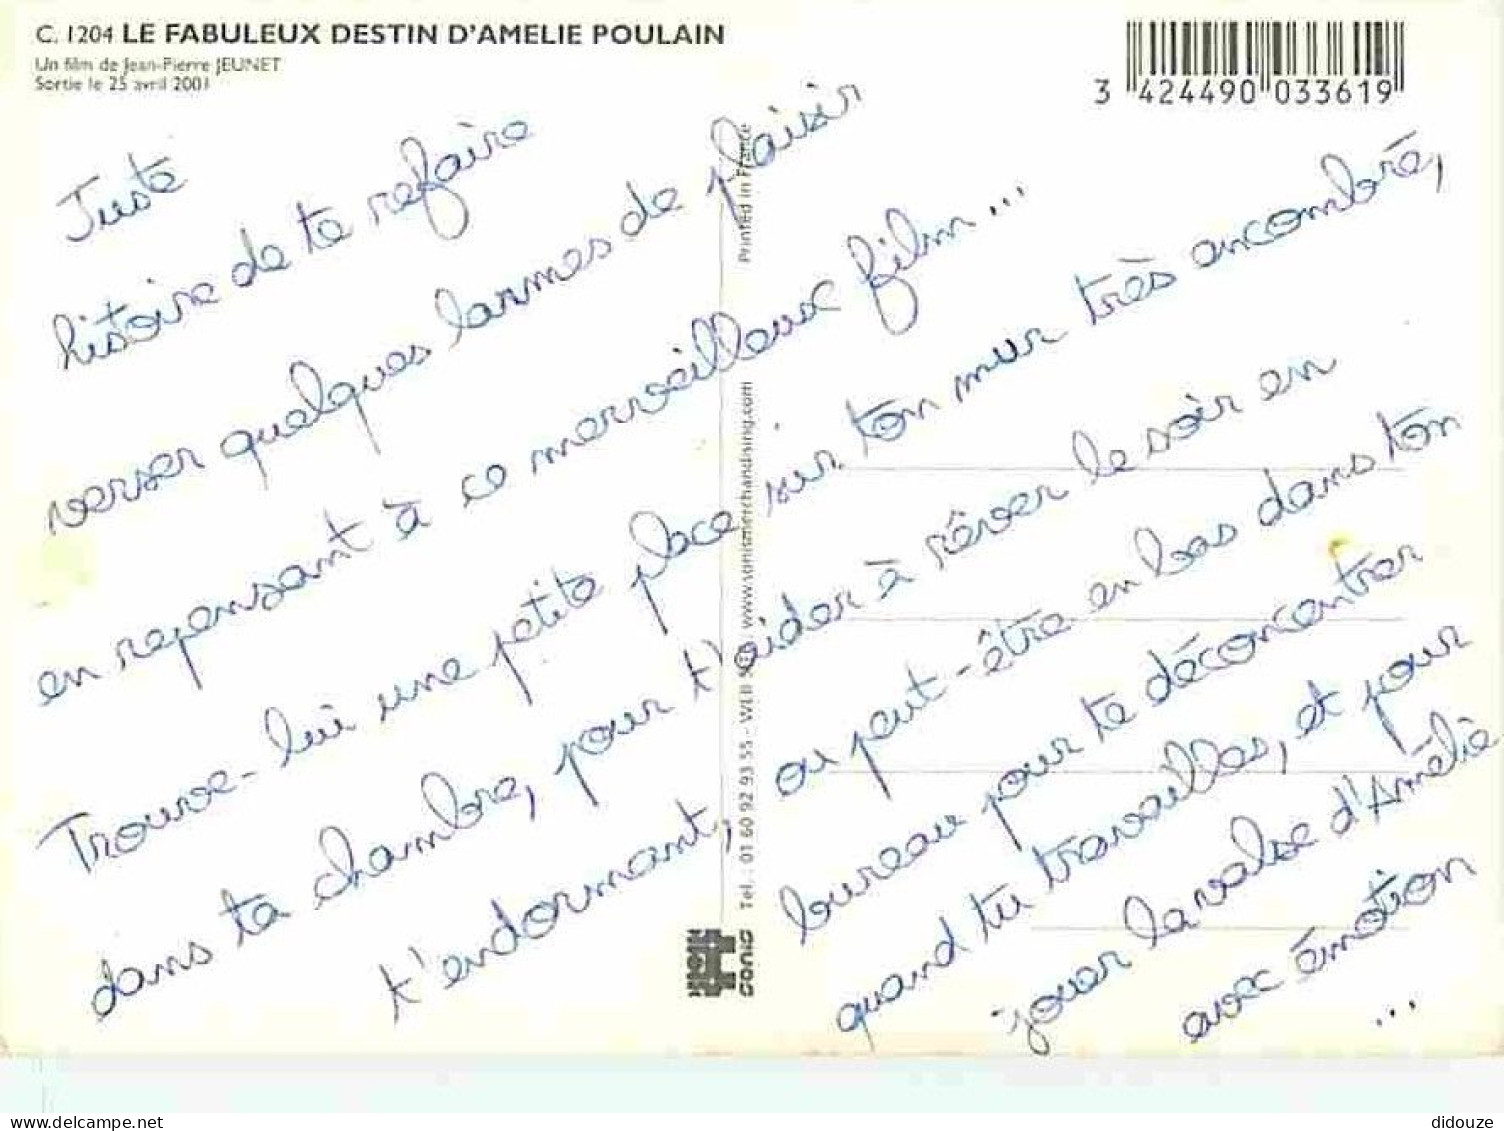 C. 1204 LE FABULEUX DESTIN D'AMELIE POULAIN
Un film de Jean-Pierre JEUNET
Sortie le 25 avril 2001
3 424490 033619
Juste
histoire de te refaire
verser quelques larmes de plaisir
en repensant à ce merveilleux film...
Trouve-lui une petite place sur ton mur très encombré,
dans ta chambre, pour t'aider à rêver le soir en
t'endormant, ou peut-être en bas dans ton
bureau pour te déconcentrer
quand tu travailles, et pour
jouer la valse d'Amélie
avec émotion
...
Printed in France
Tél. : 01 60 92 93 55 - WEB www.sonismerchandising.com
sonis
delcampe.net
didouze